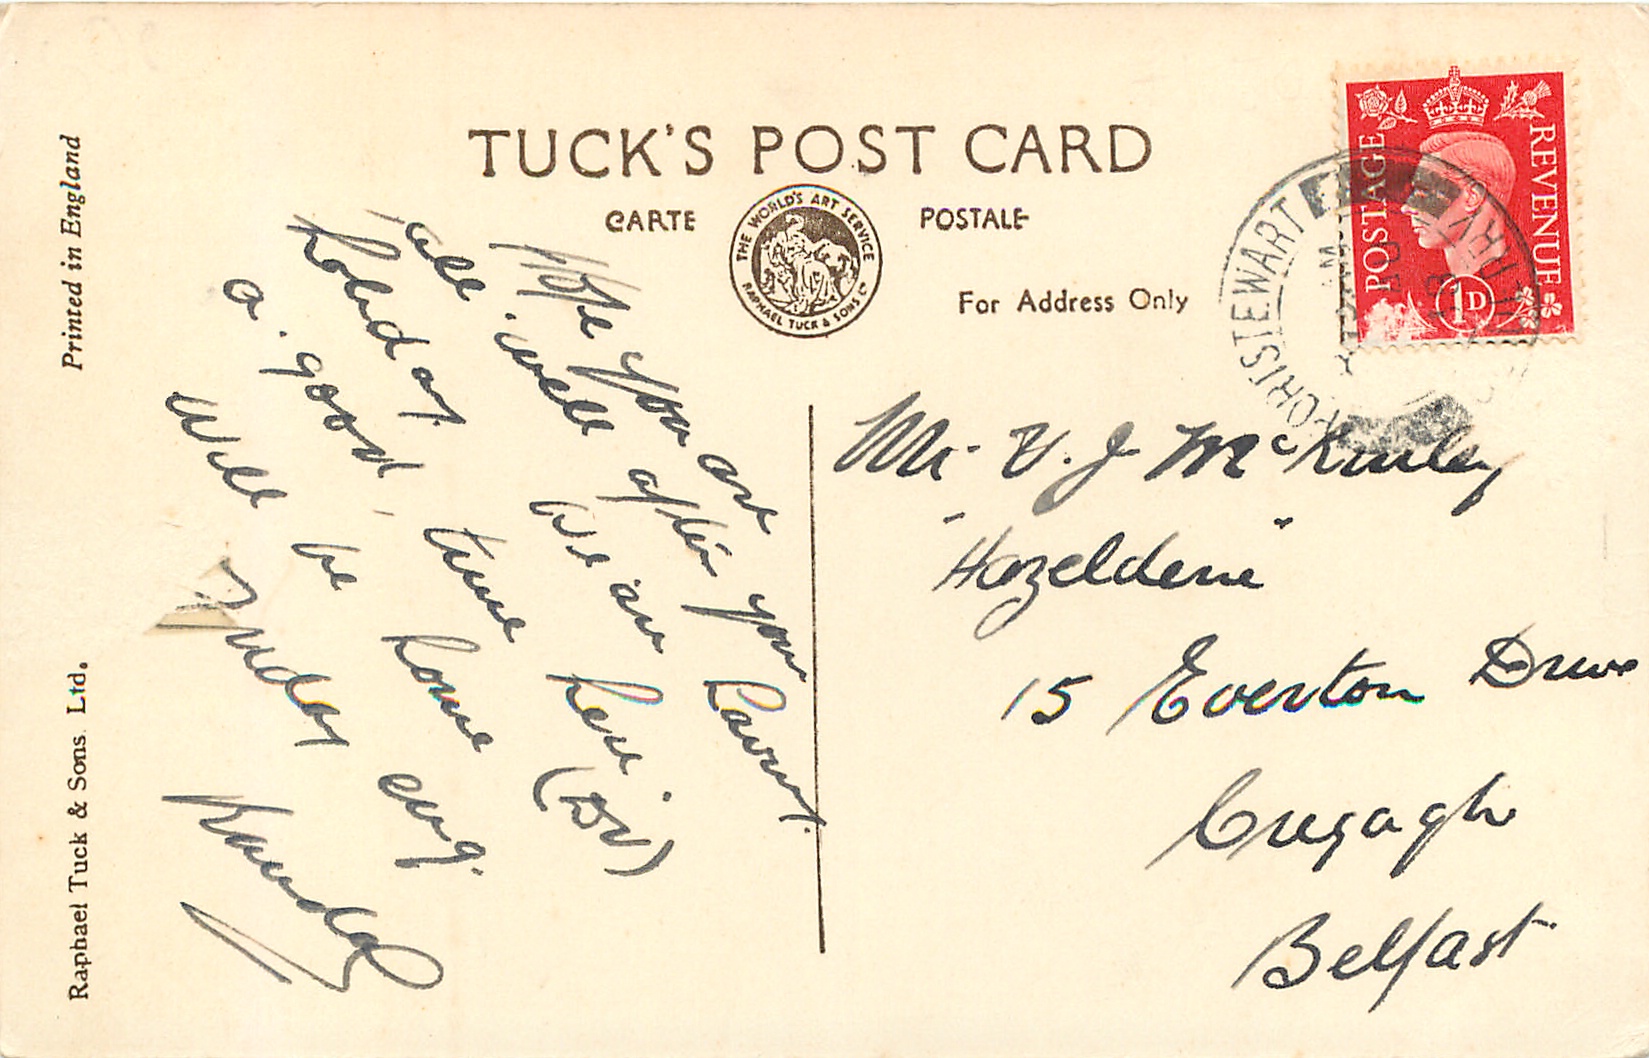 TUCK'S POST CARD
CARTE POSTALE
THE WORLD'S ART SERVICE
RAPHAEL TUCK & SONS LD
For Address Only
POSTAGE REVENUE
1D
PORTSTEWART
Printed in England
Raphael Tuck & Sons. Ltd.
Hope you are
all well after your
holiday. We are
a good time here (DV)
Will be home evg.
Friday
Randal
Mr V. J. McKinley
"Hazeldene"
15 Everton Drive
Cregagh
Belfast